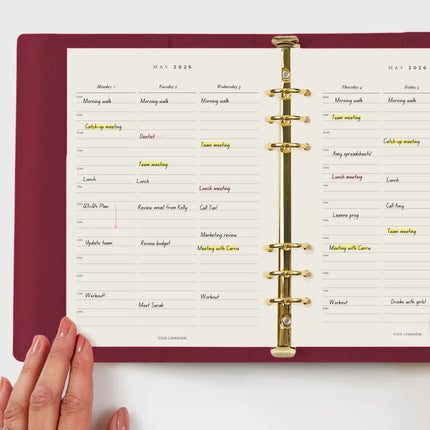 MAY 2026
Monday 1
Tuesday 2
Wednesday 3
Morning walk
Morning walk
Morning walk
Catch-up meeting
Dentist
Team meeting
Team meeting
Lunch
Lunch
Lunch meeting
Q3+Q4 Plan
Review email from Kelly
Call Tim!
Marketing review
Update team
Review budget
Meeting with Carrie
Workout!
Workout
Meet Sarah
CGD LONDON
MAY 2026
Thursday 4
Friday 5
Morning walk
Morning walk
Team meeting
Catch-up meeting
Amy spreadsheets!
Lunch meeting
Lunch
Call Amy
Leanne prog
Team meeting
Meeting with Carrie
Workout
Drinks with girls!
CGD LONDON